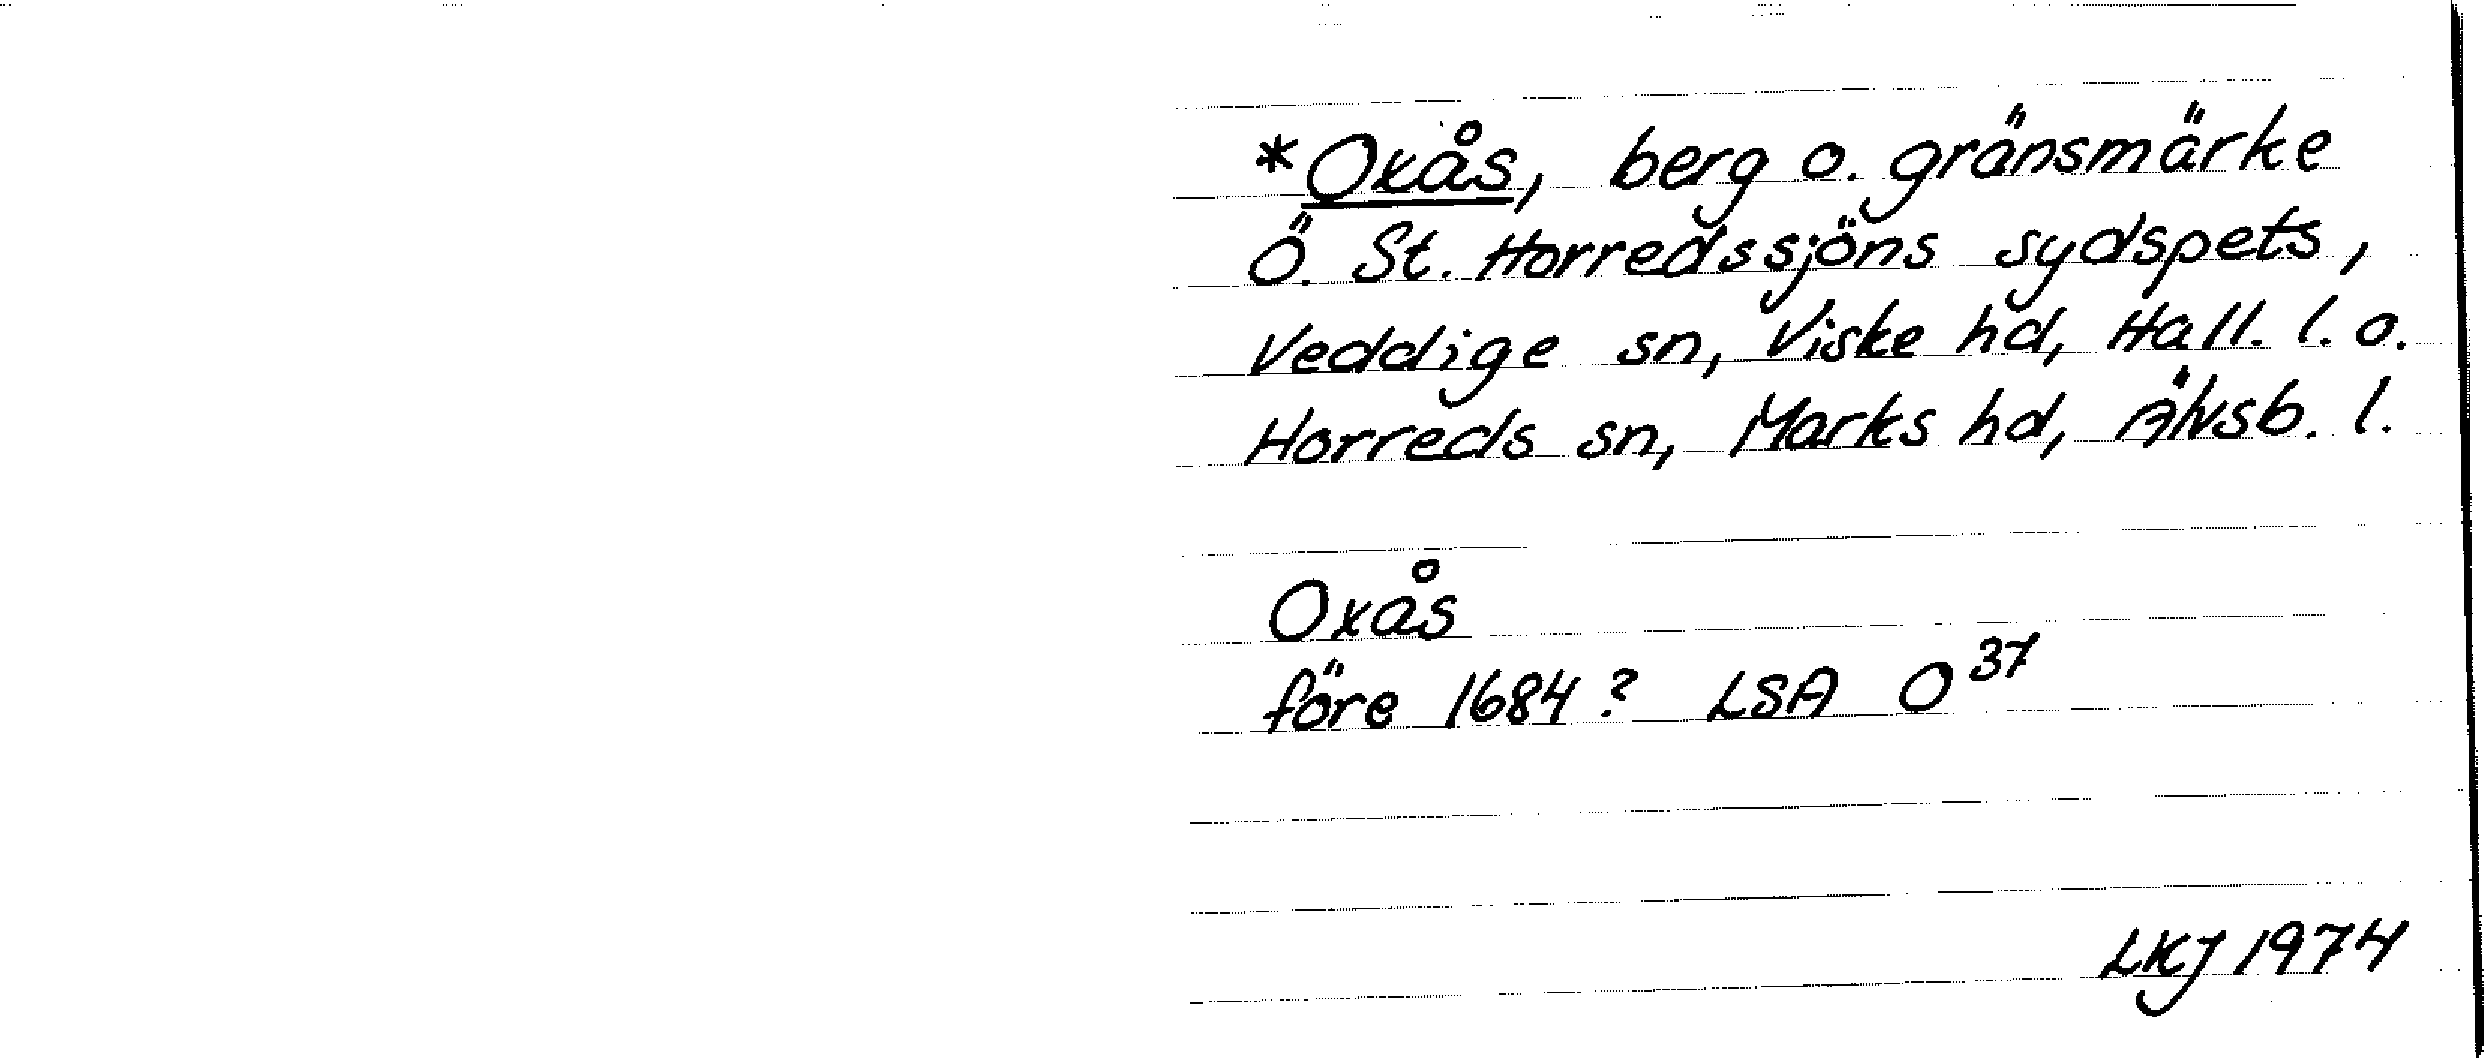 *Oxås, berg o. gränsmärke
Ö. St. Horredssjöns sydspets,
Veddige sn, Viske hd, Hall. l. o.
Horreds sn, Marks hd, Älvsb. l.
Oxås
före 1684? LSA O³⁷
LKJ 1974